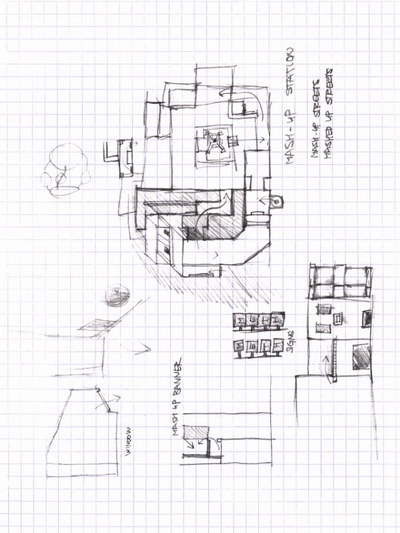 MASH-UP STATION
MASH-UP STREETS
MASHED UP STREETS
SIGNS
MASH UP BANNER
WINDOW